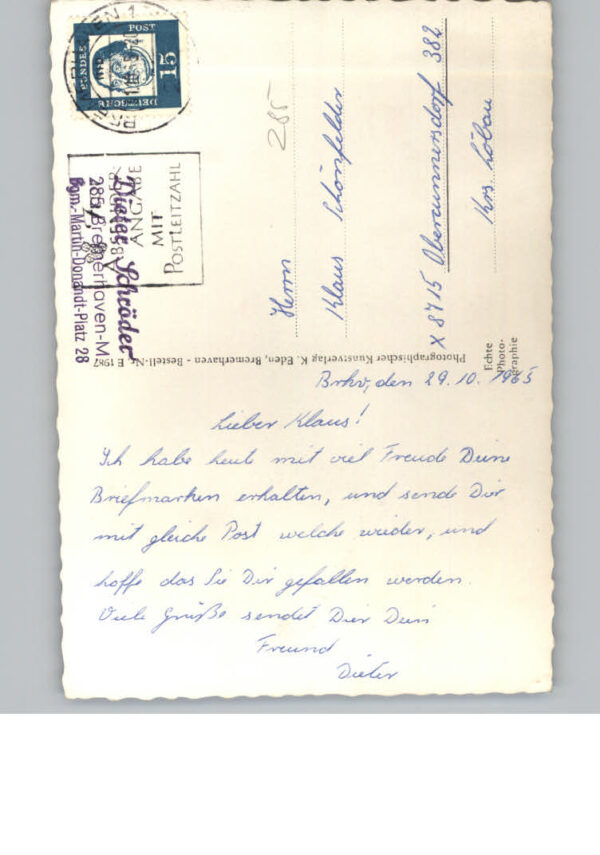 Brhv, den 29.10.1965
Lieber Klaus!
Ich habe heute mit viel Freude Deine
Briefmarken erhalten, und sende Dir
mit gleiche Post welche wieder, und
hoffe das Sie Dir gefallen werden.
Viele Grüße sendet Dir Dein
Freund
Dieter
Herrn
Klaus Schönfelder
X 8715 Obercunnersdorf 382
Krs. Löbau
285
DEUTSCHE BUNDESPOST
15
ANGABE
MIT
POSTLEITZAHL
Dieter Schröder
285 Bremerhaven-M
Bgm.-Martin-Donandt-Platz 28
Photographischer Kunstverlag K. Eden, Bremerhaven - Bestell-Nr. E 1967
Echte
Photo-
graphie